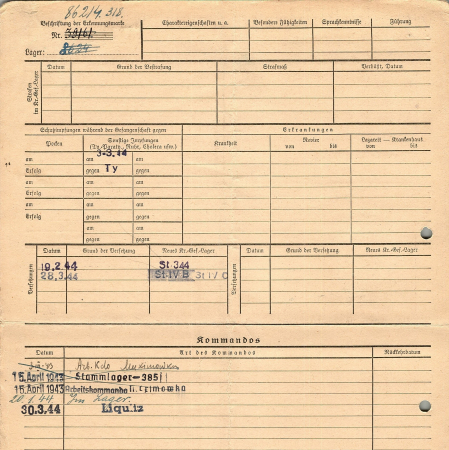 86214. 318.
Beschriftung der Erkennungsmarke
Nr.
Lager:
Charaktereigenschaften u. a.
Besondere Fähigkeiten
Sprachkenntnisse
Führung
Strafen im Kr.-Gef.-Lager
Datum
Grund der Bestrafung
Strafmaß
Verbüßt, Datum
Schutzimpfungen während der Gefangenschaft gegen
Erkrankungen
Pocken
Sonstige Impfungen
(Ty., Paraty., Ruhr, Cholera usw.)
Krankheit
Revier
von bis
Lazarett — Krankenhaus
von bis
am am 3-3.44
Erfolg gegen Ty
am am
Erfolg gegen
am am
Erfolg gegen
am am
Erfolg gegen
am
gegen
Versetzungen
Datum
Grund der Versetzung
Neues Kr.-Gef.-Lager
Versetzungen
Datum
Grund der Versetzung
Neues Kr.-Gef.-Lager
19.2.44 St 344
28.3.44 St IV B St IV C
Kommandos
Datum
Art des Kommandos
Rückkehrdatum
Arb. Kdo
15. April 1943 Stammlager-385
16. April 1943 Arbeitskommando
20.1.44 Im Lager.
30.3.44 Liquitz